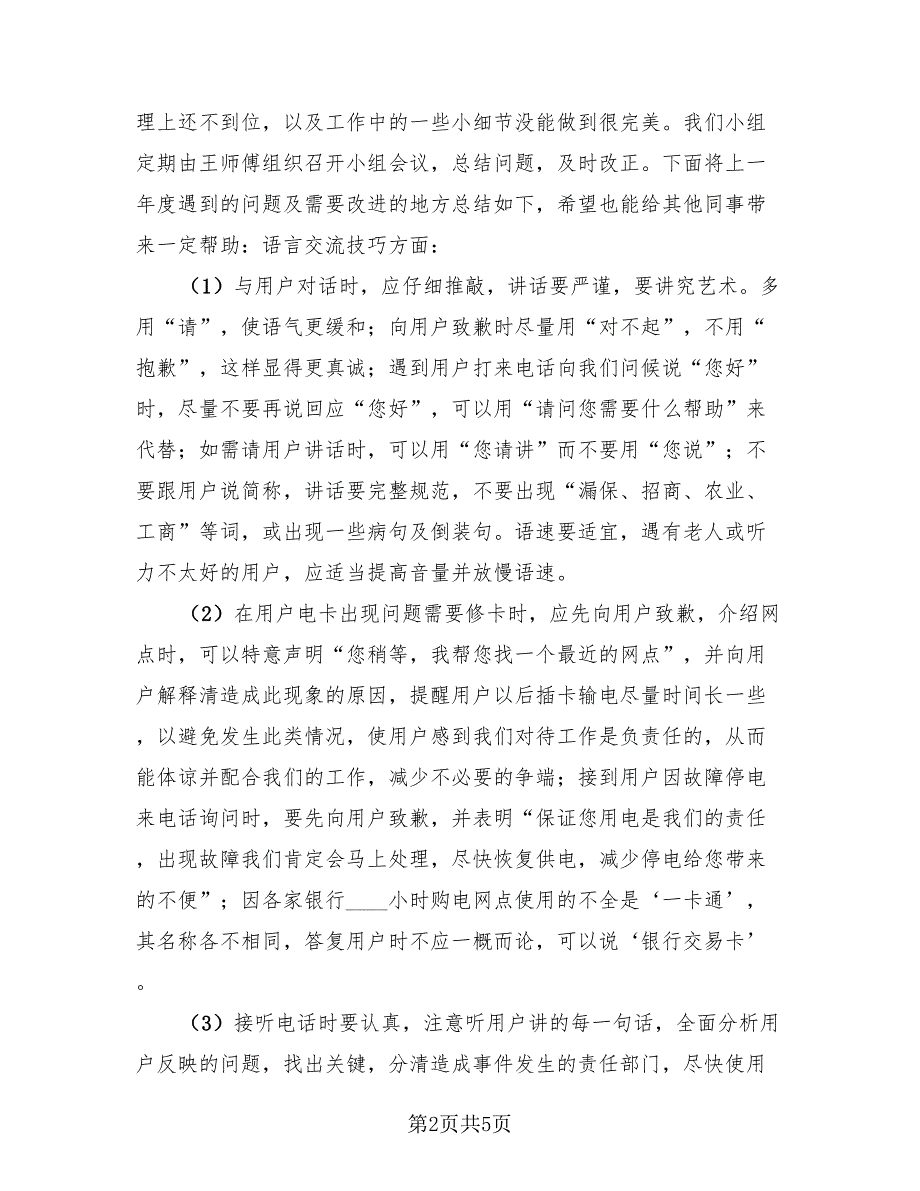 理上还不到位，以及工作中的一些小细节没能做到很完美。我们小组
定期由王师傅组织召开小组会议，总结问题，及时改正。下面将上一
年度遇到的问题及需要改进的地方总结如下，希望也能给其他同事带
来一定帮助：语言交流技巧方面：
（1）与用户对话时，应仔细推敲，讲话要严谨，要讲究艺术。多
用“请”，使语气更缓和；向用户致歉时尽量用“对不起”，不用“
抱歉”，这样显得更真诚；遇到用户打来电话向我们问候说“您好”
时，尽量不要再说回应“您好”，可以用“请问您需要什么帮助”来
代替；如需请用户讲话时，可以用“您请讲”而不要用“您说”；不
要跟用户说简称，讲话要完整规范，不要出现“漏保、招商、农业、
工商”等词，或出现一些病句及倒装句。语速要适宜，遇有老人或听
力不太好的用户，应适当提高音量并放慢语速。
（2）在用户电卡出现问题需要修卡时，应先向用户致歉，介绍网
点时，可以特意声明“您稍等，我帮您找一个最近的网点”，并向用
户解释清造成此现象的原因，提醒用户以后插卡输电尽量时间长一些
，以避免发生此类情况，使用户感到我们对待工作是负责任的，从而
能体谅并配合我们的工作，减少不必要的争端；接到用户因故障停电
来电话询问时，要先向用户致歉，并表明“保证您用电是我们的责任
，出现故障我们肯定会马上处理，尽快恢复供电，减少停电给您带来
的不便”；因各家银行____小时购电网点使用的不全是‘一卡通’，
其名称各不相同，答复用户时不应一概而论，可以说‘银行交易卡’
。
（3）接听电话时要认真，注意听用户讲的每一句话，全面分析用
户反映的问题，找出关键，分清造成事件发生的责任部门，尽快使用
第2页共5页